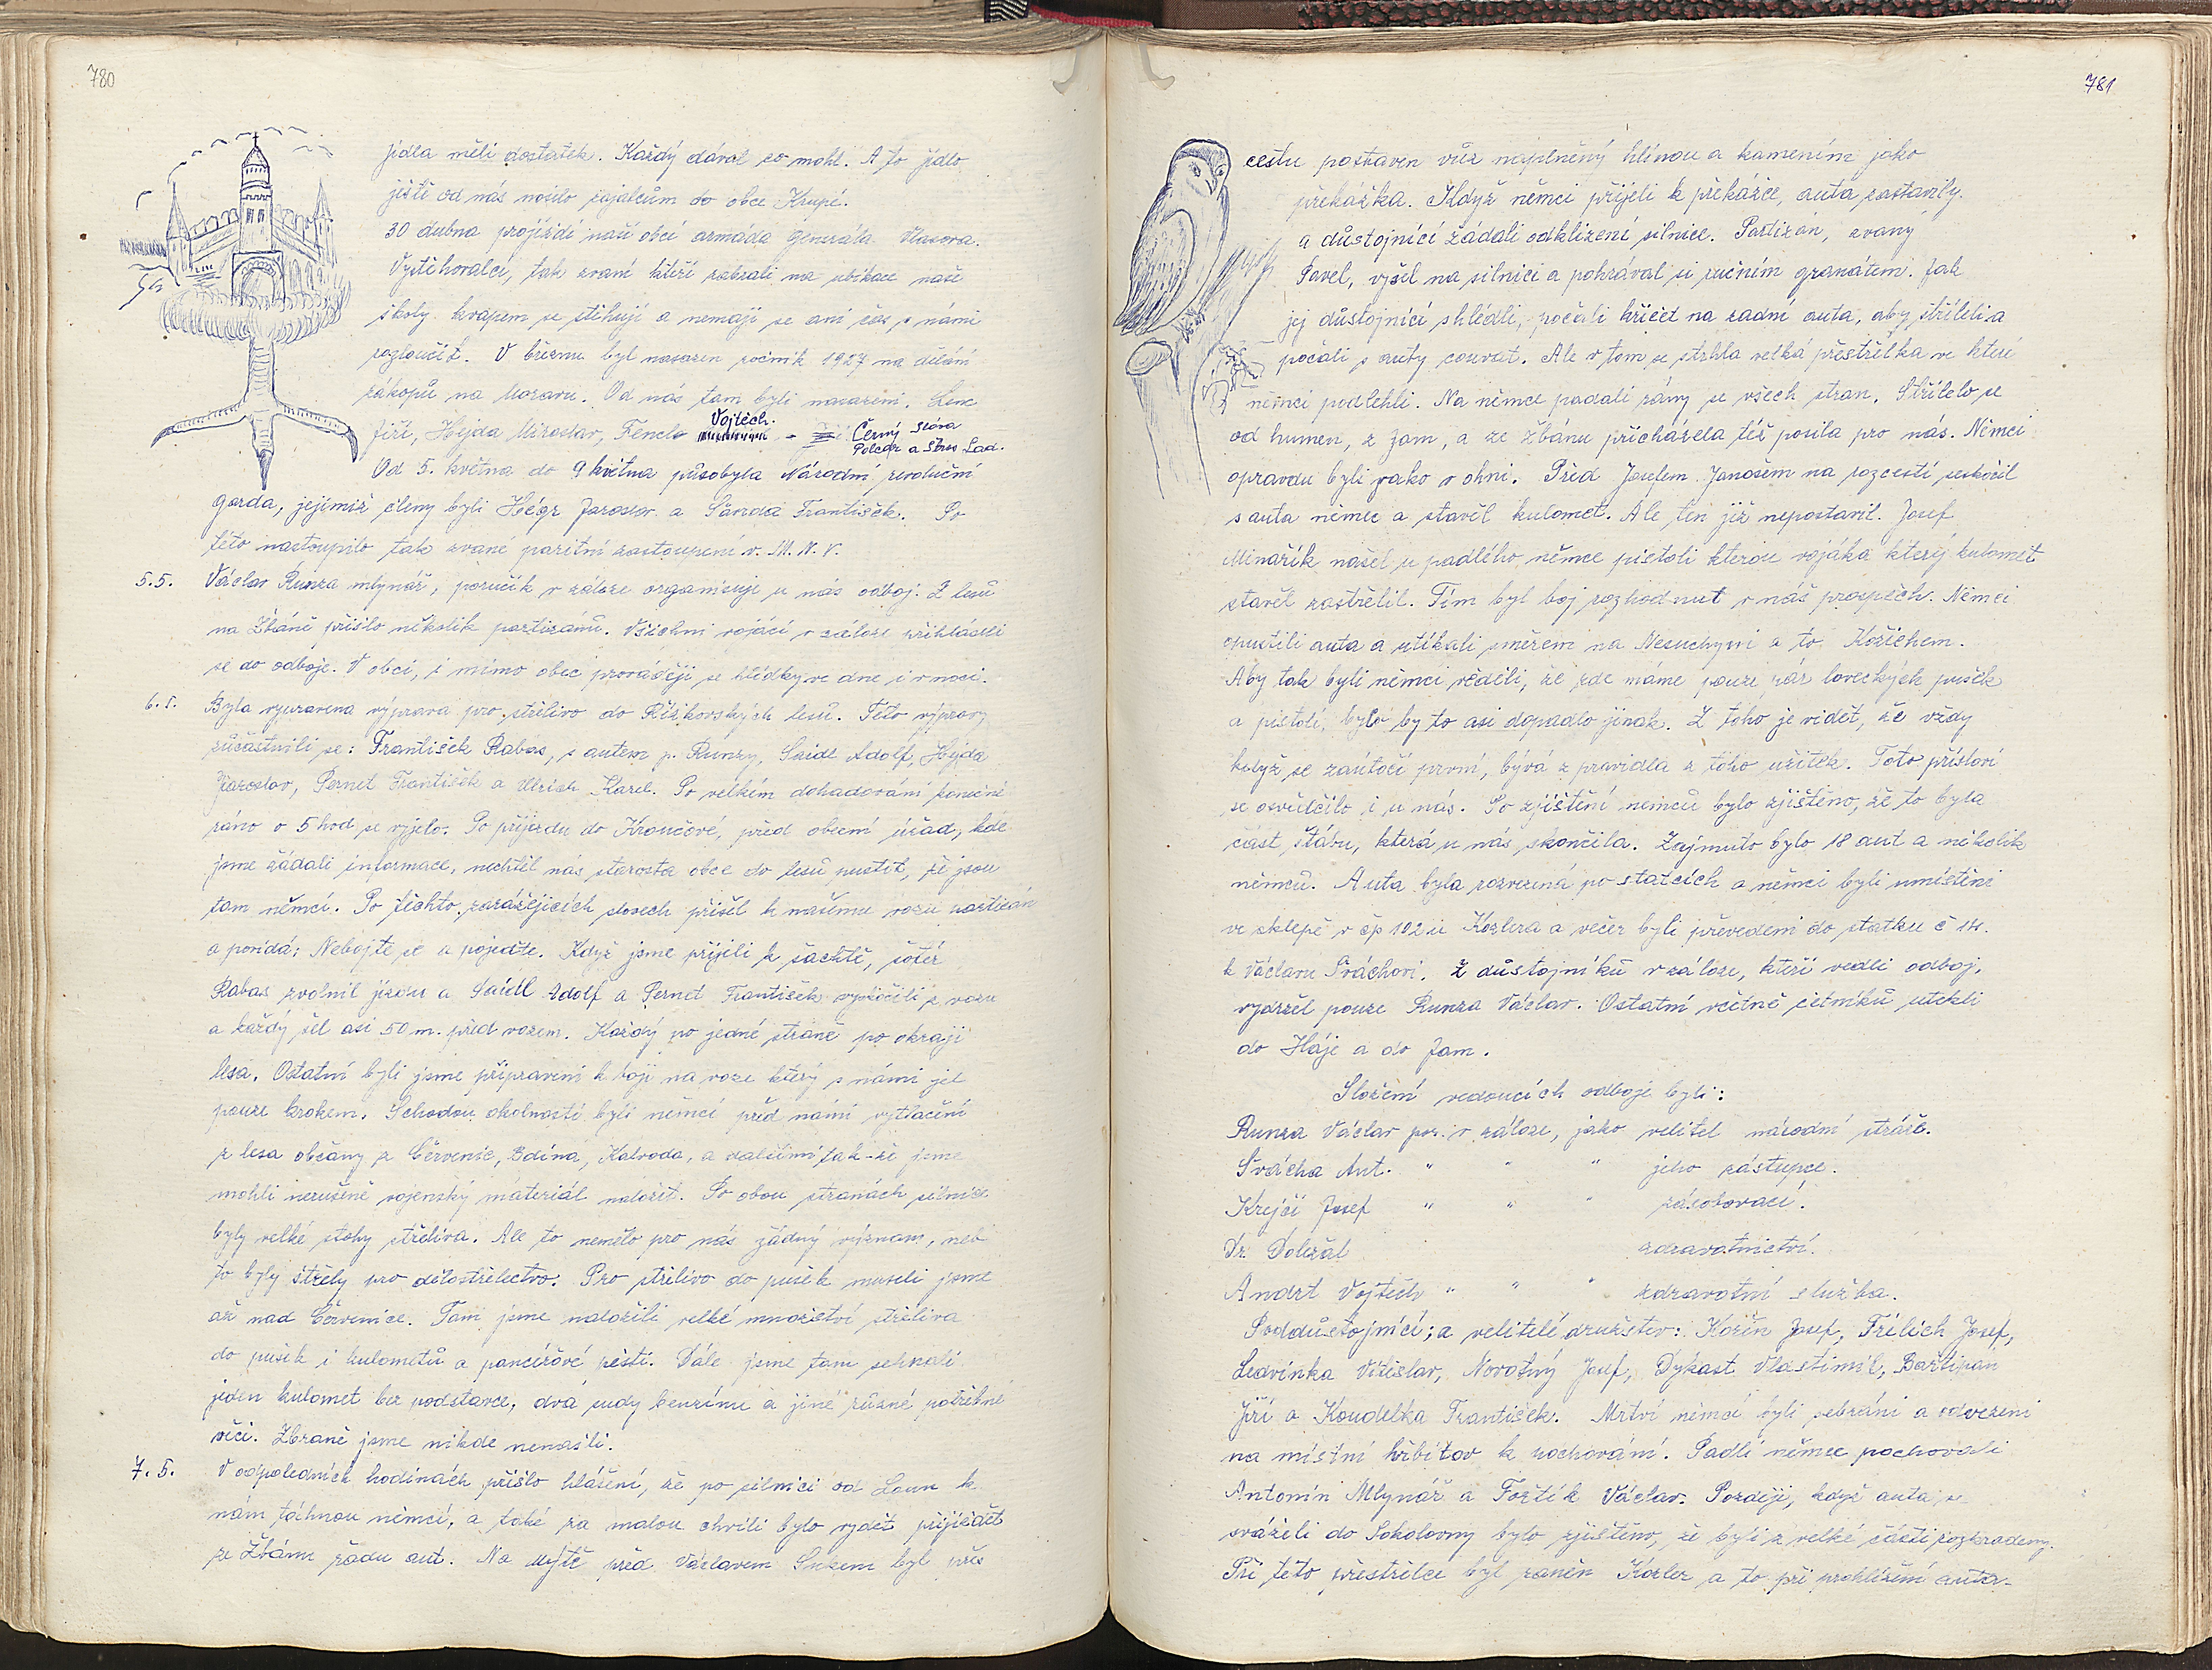 780
jídla měli dostatek. Každý dával co mohl. A to jídlo
ještě od nás nosilo zajatcům do obce Krupé.
30 dubna projíždí naší obcí armáda generála Vlasova.
Vystihoralci, tak zvaní kteří zabrali na ubikace naše
školy kvapem se stěhují a nemají se ani čas s námi
rozloučit. V březnu byl nasazen ročník 1927 na dělání
zákopů na Moravu. Od nás tam byli nasazeni. Lenc
Jiří, Hejda Miroslav, Fencl Vojtěch. - Černý Sláva
Polcar a Stros Lad.
Od 5. května do 9 května působyla Národní revoluční
garda, jejímiž členy byli Hégr Jaroslav a Šanda František. Po
této nastoupilo tak zvané paritní zastoupení v. M. N. V.
5.5. Václav Runza mlynář, poručík v záloze organisuje u nás odboj. Z lesů
na Žbáně přišlo několik partizánů. Všichni vojáci v záloze přihlásili
se do odboje. V obci, i mimo obec prováději se hlídky ve dne i v noci.
6.5. Byla vypravena výprava pro střelivo do Řížkovských lesů. Této výpravy
zůčastnili se: František Rabas, s autem p. Runzy, Saidl Adolf, Hejda
Jaroslav, Pernet František a Ulrich Karel. Po velkém dohadování konečně
ráno o 5 hod se vyjelo. Po příjezdu do Kroučové, před obecní úřad, kde
jsme žádali informace, nechtěl nás starosta obce do lesů pustit, že jsou
tam němci. Po těchto zarážejících slovech přišel k našemu vozu partizán
a povídá: Nebojte se a pojeďte. Když jsme přijeli k šachtě, šofér
Rabas zvolnil jízdu a Saidl Adolf a Pernet František vyskočili z vozu
a každý šel asi 50 m. před vozem. Každý po jedné straně po okraji
lesa. Ostatní byli jsme připraveni k boji na voze který s námi jel
pouze krokem. Schodou okolností byli němci před námi vytlačeni
z lesa občany z Červenic, Bdína, Kalivoda, a dalšími tak-že jsme
mohli nerušeně vojenský materiál naložit. Po obou stranách silnice
byly velké stohy střeliva. Ale to nemělo pro nás žádný význam, neb
to byly střely pro dělostřelectvo. Pro střelivo do pušek museli jsme
až nad Červenice. Tam jsme naložili velké množství střeliva
do pušek i kulometů a pancéřové pěsti. Dále jsme tam sehnali
jeden kulomet bez podstavce, dva sudy benzínu a jiné různé potřebné
věci. Zbraně jsme nikde nenašli.
7.5. V odpoledních hodinách přišlo hlášení, že po silnici od Loun k
nám táhnou němci, a také za malou chvíli bylo vydět přijíždět
ze Žbánu řadu aut. Na Mýtě před Václavem Sukem byl přes
781
cestu postaven vůz naplněný hlínou a kamením jako
překážka. Když němci přijeli k překážce, auta zastavily.
a důstojníci žádali odklizení silnice. Partizán, zvaný
Pavel, vyšel na silnici a pohrával si ručním granátem. Jak
jej důstojníci shlédli, počali křičet na zadní auta, aby stříleli a
počali s auty couvat. Ale v tom se strhla velká přestřelka ve které
němci podlehli. Na němce padali rány se všech stran. Střílelo se
od humen, z Jam, a ze Žbánu přicházela též posila pro nás. Němci
opravdu byli jako v ohni. Před Josefem Janošem na rozcestí seskočil
s auta němec a stavěl kulomet. Ale ten již nepostavil. Josef
Minařík našel u padlého němce pistoli kterou vojáka který kulomet
stavěl zastřelil. Tím byl boj rozhodnut v náš prospěch. Němci
opustili auta a utíkali směrem na Nesuchyni a to Kožichem.
Aby tak byli němci věděli, že zde máme pouze pár loveckých pušek
a pistolí, bylo by to asi dopadlo jinak. Z toho je vidět, že vždy
když se zaútočí první, bývá z pravidla z toho užitek. Toto přísloví
se osvědčilo i u nás. Po zjištění němců bylo zjištěno, že to byla
část štábu, která u nás skončila. Zajmuto bylo 18 aut a několik
němců. Auta byla rozvezená po statcích a němci byli umístěni
ve sklepě v čp 102 u Kozlera a večer byli převedeni do statku č 14.
k Václavu Šváchovi. Z důstojníků v záloze, kteří vedli odboj,
vydržel pouze Runza Václav. Ostatní včetně četníků utekli
do Háje a do Jam.
Složení vedoucích odboje byli:
Runza Václav por. v záloze, jako velitel národní stráže.
Švácha Ant. " " " jeho zástupce.
Krejčí Josef " " " zásobovací.
Dr. Doležal zdravotnictví.
Andrt Vojtěch " " " zdravotní služba.
Poddůstojníci; a velitelé družstev: Kořín Josef, Frélich Josef,
Ledvinka Vítězslav, Novotný Josef, Dykast Vlastimil, Bartipan
Jiří a Koudelka František. Mrtví němci byli sebráni a odvezeni
na místní hřbitov k pochování. Padlé němce pochovali
Antonín Mlynář a Foztík Václav. Později, když auta se
sváželi do Sokolovny bylo zjištěno, že byli z velké části rozkradeny.
Při této přestřelce byl raněn Kozler a to při prohlížení auta-